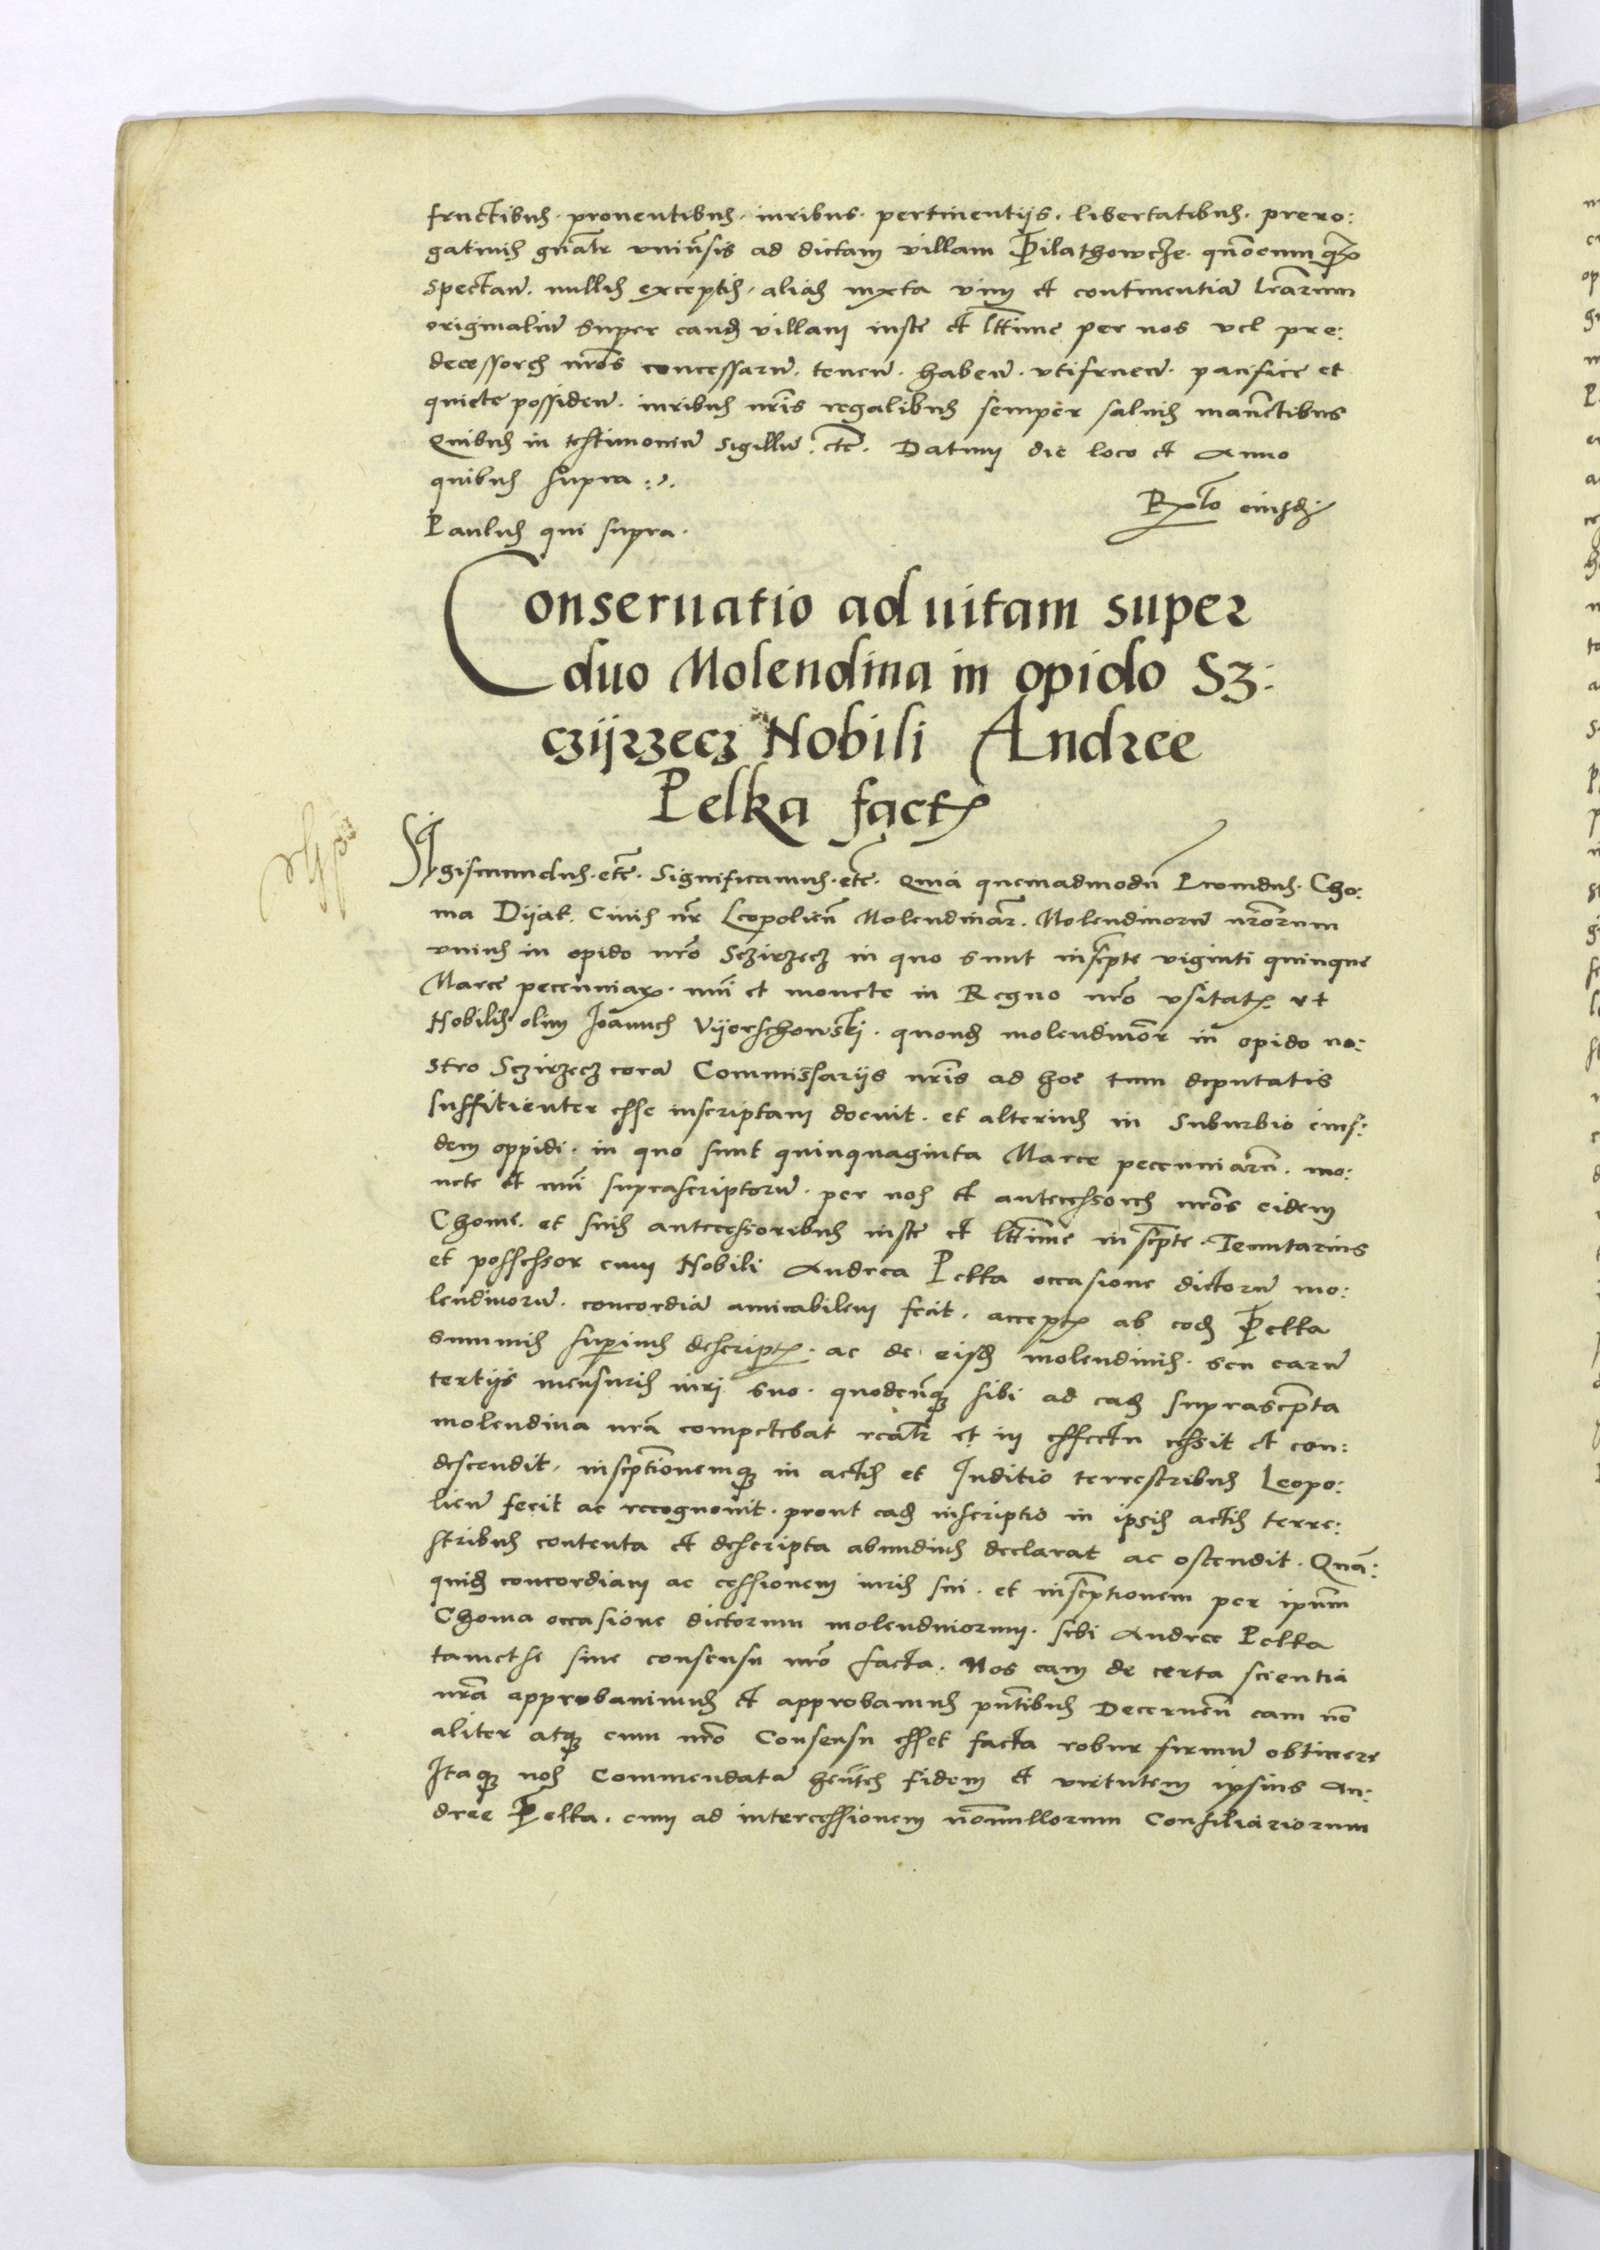 fructibus. prouentibus. iuribus. pertinentijs. libertatibus. prero:
gatiuis gnāliter vniūsis ad dictam villam Pilathowcze. quōcumq̄
spectan̄. nullis exceptis. alias iuxta vim et continentiā lr̄arum
originaliū super eand villam iuste et ltt̄ime per nos vel pre:
decessores nr̄os concessarū. tenen̄. haben̄. vtifruen̄. pacifice et
quiete possiden̄. iuribus nr̄is regalibus semper saluis manētibus
Quibus in testimoniū sigillū. etc̄. Datum die loco et Anno
quibus supra
Rel̄o eiusd
Paulus qui supra.
Conseruatio ad uitam super
duo Molendina in opido Sz:
czijrzecz Nobili Andree
Pelka fact
Sigismundus. etc̄. Significamus. etc̄. Quia quemadmodū Prouidus. Cho:
ma Dijak. Ciuis nr̄ Leopolien̄ Molendinar̄. Molendinorū nr̄orum
vnius in opido nr̄o Sczirzecz in quo sunt inscr̄pte viginti quinque
Marce pecuniarū. nūi et monete in Regno nr̄o vsitat. vt
Nobilis olim Joannes Vijerschowski. quond molendinor̄ in opido no:
stro Sczirzecz corā Commissarijs nr̄is ad hoc tum deputatis
sufficienter esse inscriptam docuit. et alterius in Suburbio eius:
dem oppidi. in quo sunt quinquaginta Marce pecuniarū. mo:
nete et nūi suprascriptorū. per nos et antecessores nr̄os eidem
Chome. et suis antecessoribus iuste et ltt̄ime inscr̄pte. Tenutarius
et possessor cum Nobili Andrea Pelka occasione dictorū mo:
lendinorū. concordiā amicabilem fecit. accept ab eod Pelka
summis superius descript. ac de eisd molendinis. seu earū
tertijs mensuris iuri suo. quodcūq sibi ad ead suprascr̄pta
molendina nr̄a competebat realr̄ et in effectu cessit et con:
descendit. inscr̄ptionemq in actis et Juditio terrestribus Leopo:
lien̄ fecit ac recognouit. prout ead inscriptio in ipsis actis terre:
stribus contenta et descripta abundius declarat ac ostendit. Quā:
quid concordiam ac cessionem iuris sui. et inscr̄ptionem per ipsum
Choma occasione dictorum molendinorum. sibi Andree Pelka
tametse sine consensu nr̄o facta. Nos eam de certa scientia
nr̄a approbauimus et approbamus pn̄tibus Decernen̄ eam nō
aliter atq cum nr̄o Consensu esset facta robur firmū obtinere
Itaq nos Commendatā hēntes fidem et virtutem ipsius An:
dree Pelka. cum ad intercessionem nōnullorum Consiliariorum